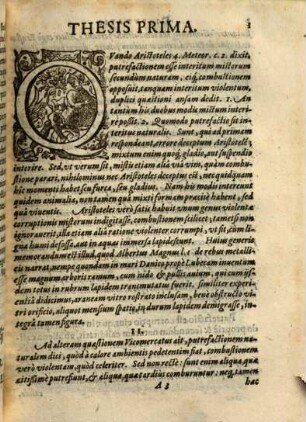 THESIS PRIMA. 1
QVando Aristoteles 4. Meteor. c. 2. dixit,
putrefactionem esse interitum mistorum
secundum naturam, eiq; combustionem
opposuit, tanquam interitum violentum,
duplici quæstioni ansam dedit. 1. An
tantum his duobus modis mistum interi-
re possit. 2. Quomodo putrefactio sit in-
teritus naturalis. Sunt, qui ad primam
respondeant, errore deceptum Aristotelē,
mixtum enim quoq; gladio, aut suspendio
interire. Sed, ut verum sit, mistis etiam alia vi, quàm com-
bustione parari, nihilominus nec Aristoteles deceptus est, nec quidquam
hic momenti habet seu furca, seu gladius. Nam his modis intereunt
quidem animalia, non tamen quà mixti formam præcisè habent, sed
quà viventia. Aristoteles verò satis habuit unum genus violentæ
corruptionis mistorum indigitasse, combustionem scilicet; tametsi non
ignoraret, mista etiam alia ratione violenter corrumpi, ut fit, cum li-
gna humi defossa, aut in aqua immersa lapidescunt. Huius generis
memorandum est illud, quod Albertus Magnus l. de rebus metalli-
cis narrat, nempe quondam in mari Danico propè Lubecam inventum
esse magnum arboris ramum, cum nido & pullis avium, qui cum ijs-
dem totus in rubrum lapidem transmutatus fuerit. Similiter experi-
entiâ didicimus, araneam vitro rostrato inclusam, benè obstructo vi-
tri orificio, aliquot mensium spatio, in durum lapidem demigrasse, in-
tegrâ tamen figurâ.
II.
Ad alteram quæstionem Vicomercatus ait, putrefactionem na-
turalem dici, quòd à calore ambienti pedetentim fiat, combustionem
verò violentam, quòd celeriter. Sed non rectè: sunt enim aliqua, quæ
citissimè putrefiunt, & aliqua, quæ tardiùs comburuntur: neq; tamen
A 3 hæc